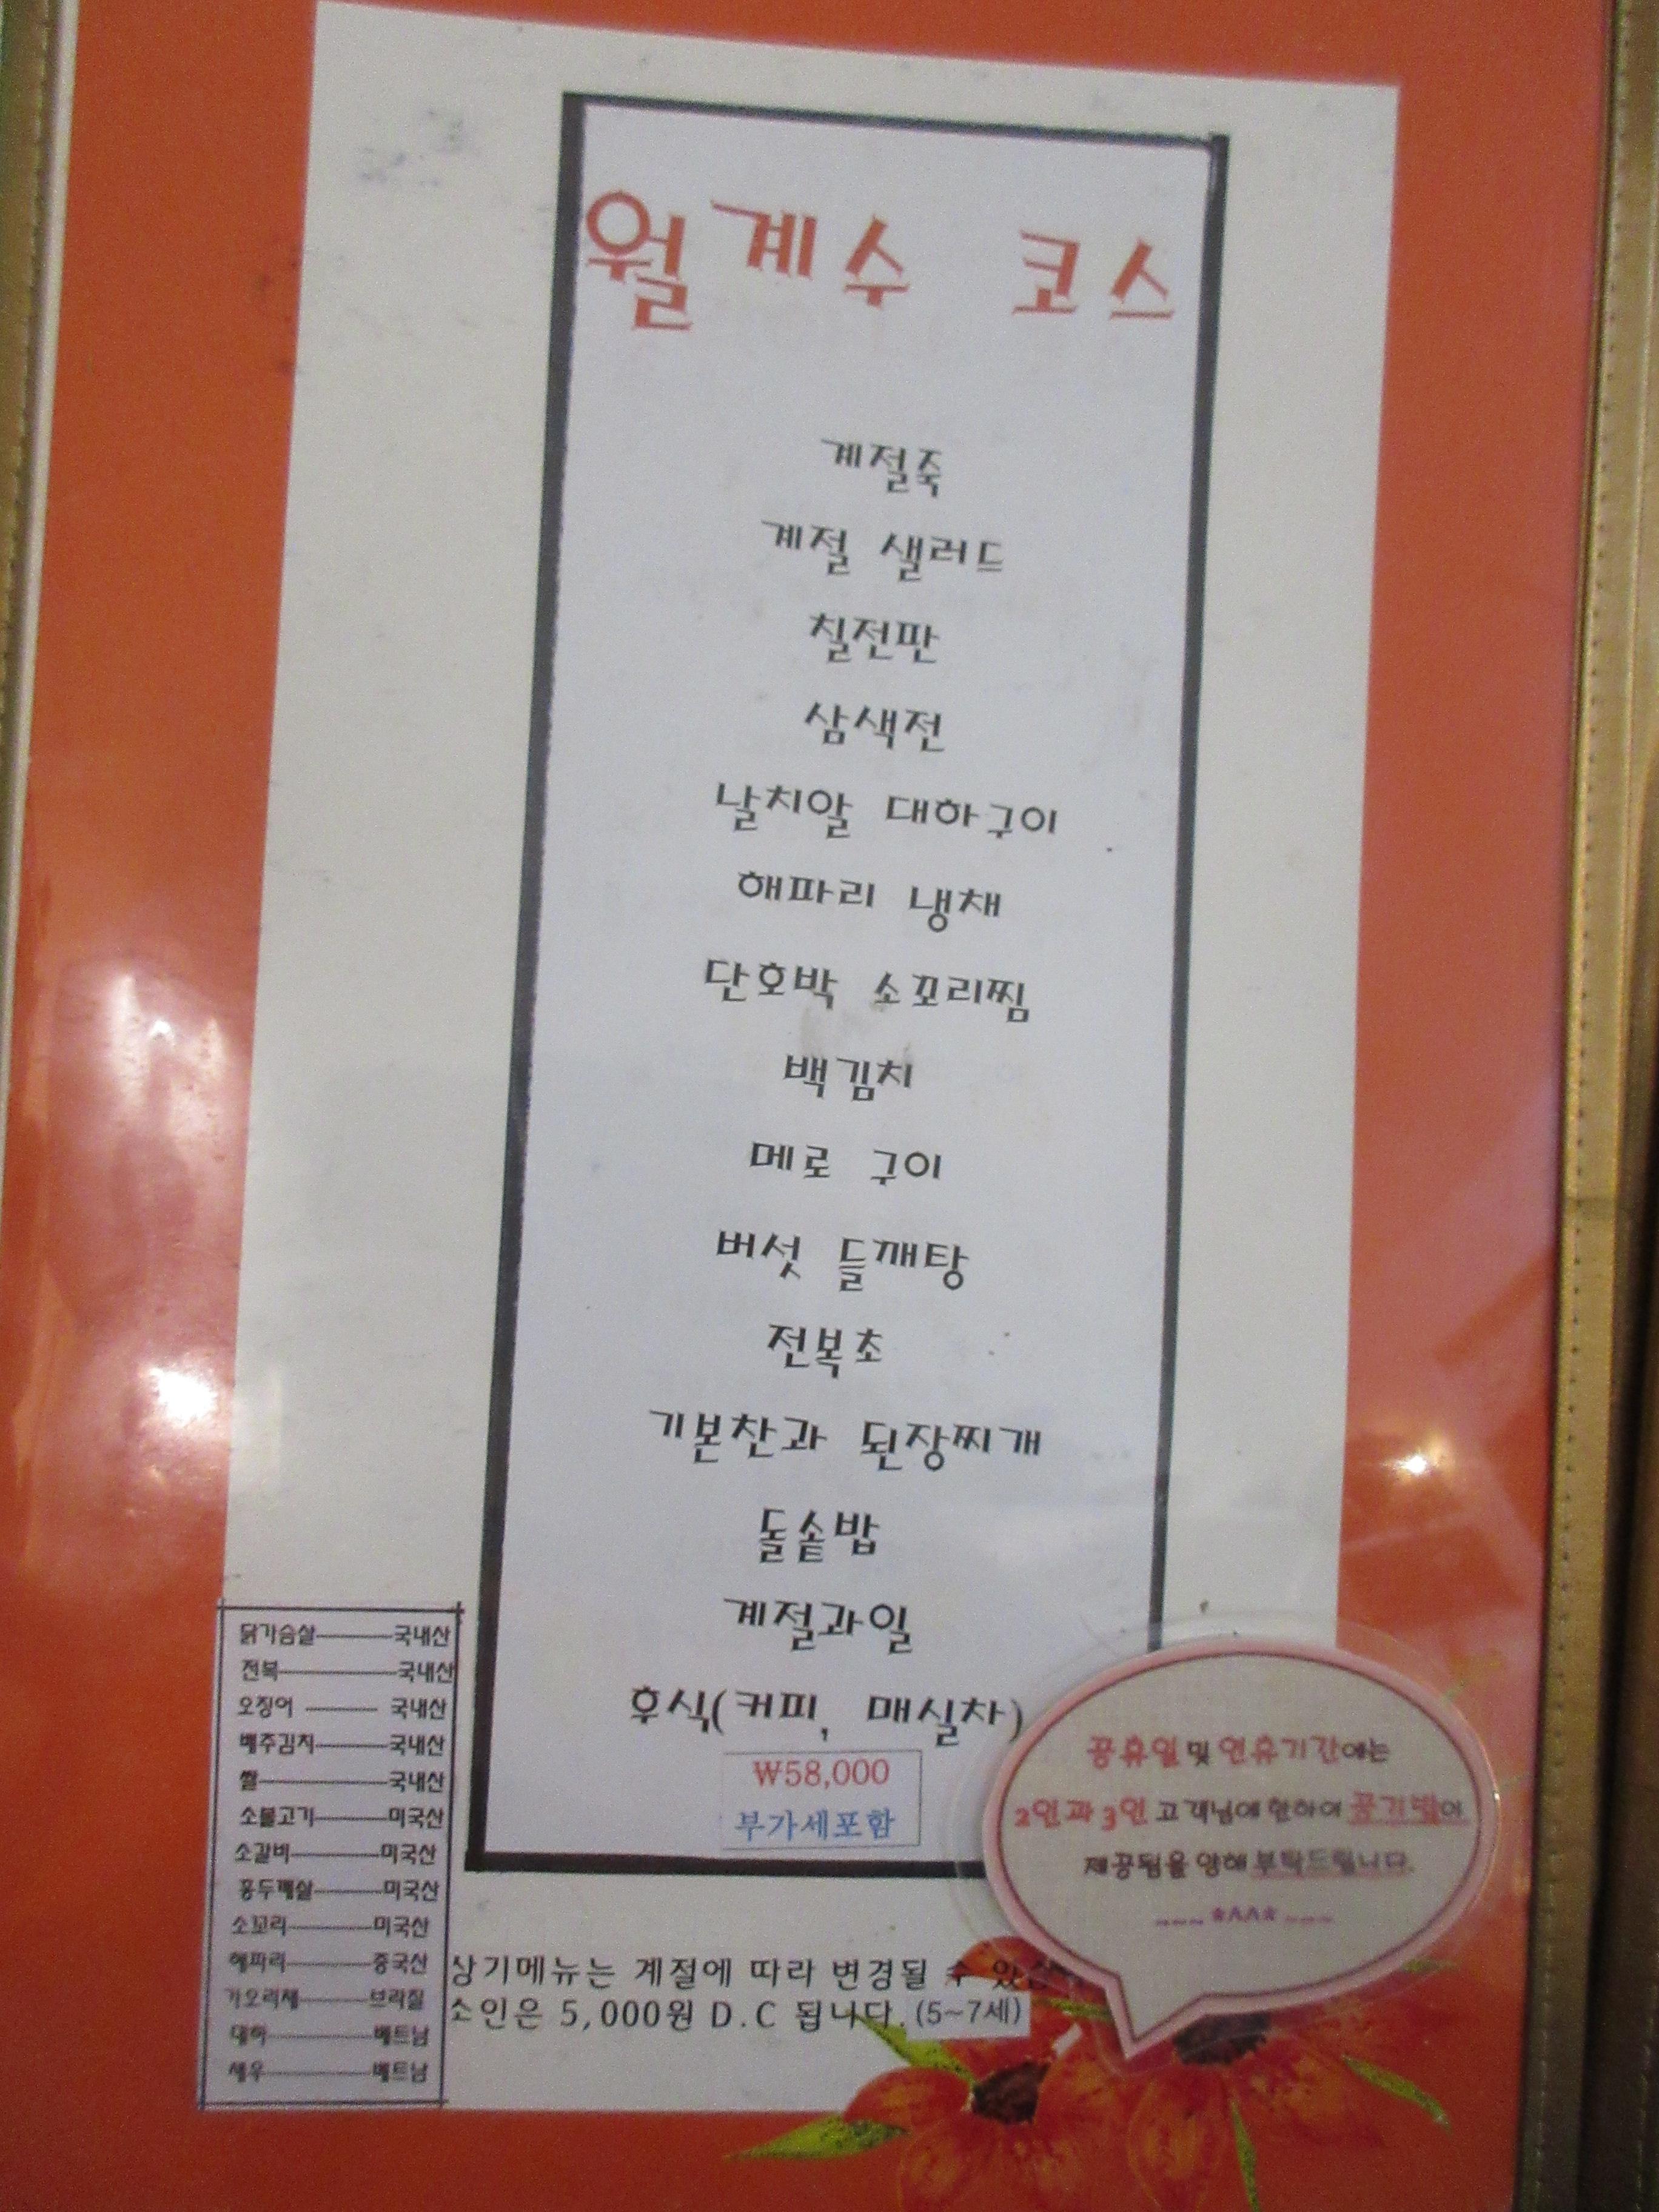 월계수 코스
계절죽
계절 샐러드
칠전판
삼색전
날치알 대하구이
해파리 냉채
단호박 소꼬리찜
백김치
메로 구이
버섯 들깨탕
전복초
기본찬과 된장찌개
돌솥밥
계절과일
후식(커피, 매실차)
₩58,000
부가세포함
닭가슴살 국내산
전복 국내산
오징어 국내산
배추김치 국내산
쌀 국내산
소불고기 미국산
소갈비 미국산
홍두깨살 미국산
소꼬리 미국산
해파리 중국산
가오리채 브라질
대하 베트남
새우 베트남
상기메뉴는 계절에 따라 변경될 수
소인은 5,000원 D.C 됩니다. (5~7세)
공휴일 및 연휴기간에는
2인과 3인 고객님에 한하여 공기밥이
제공됨을 양해 부탁드립니다.